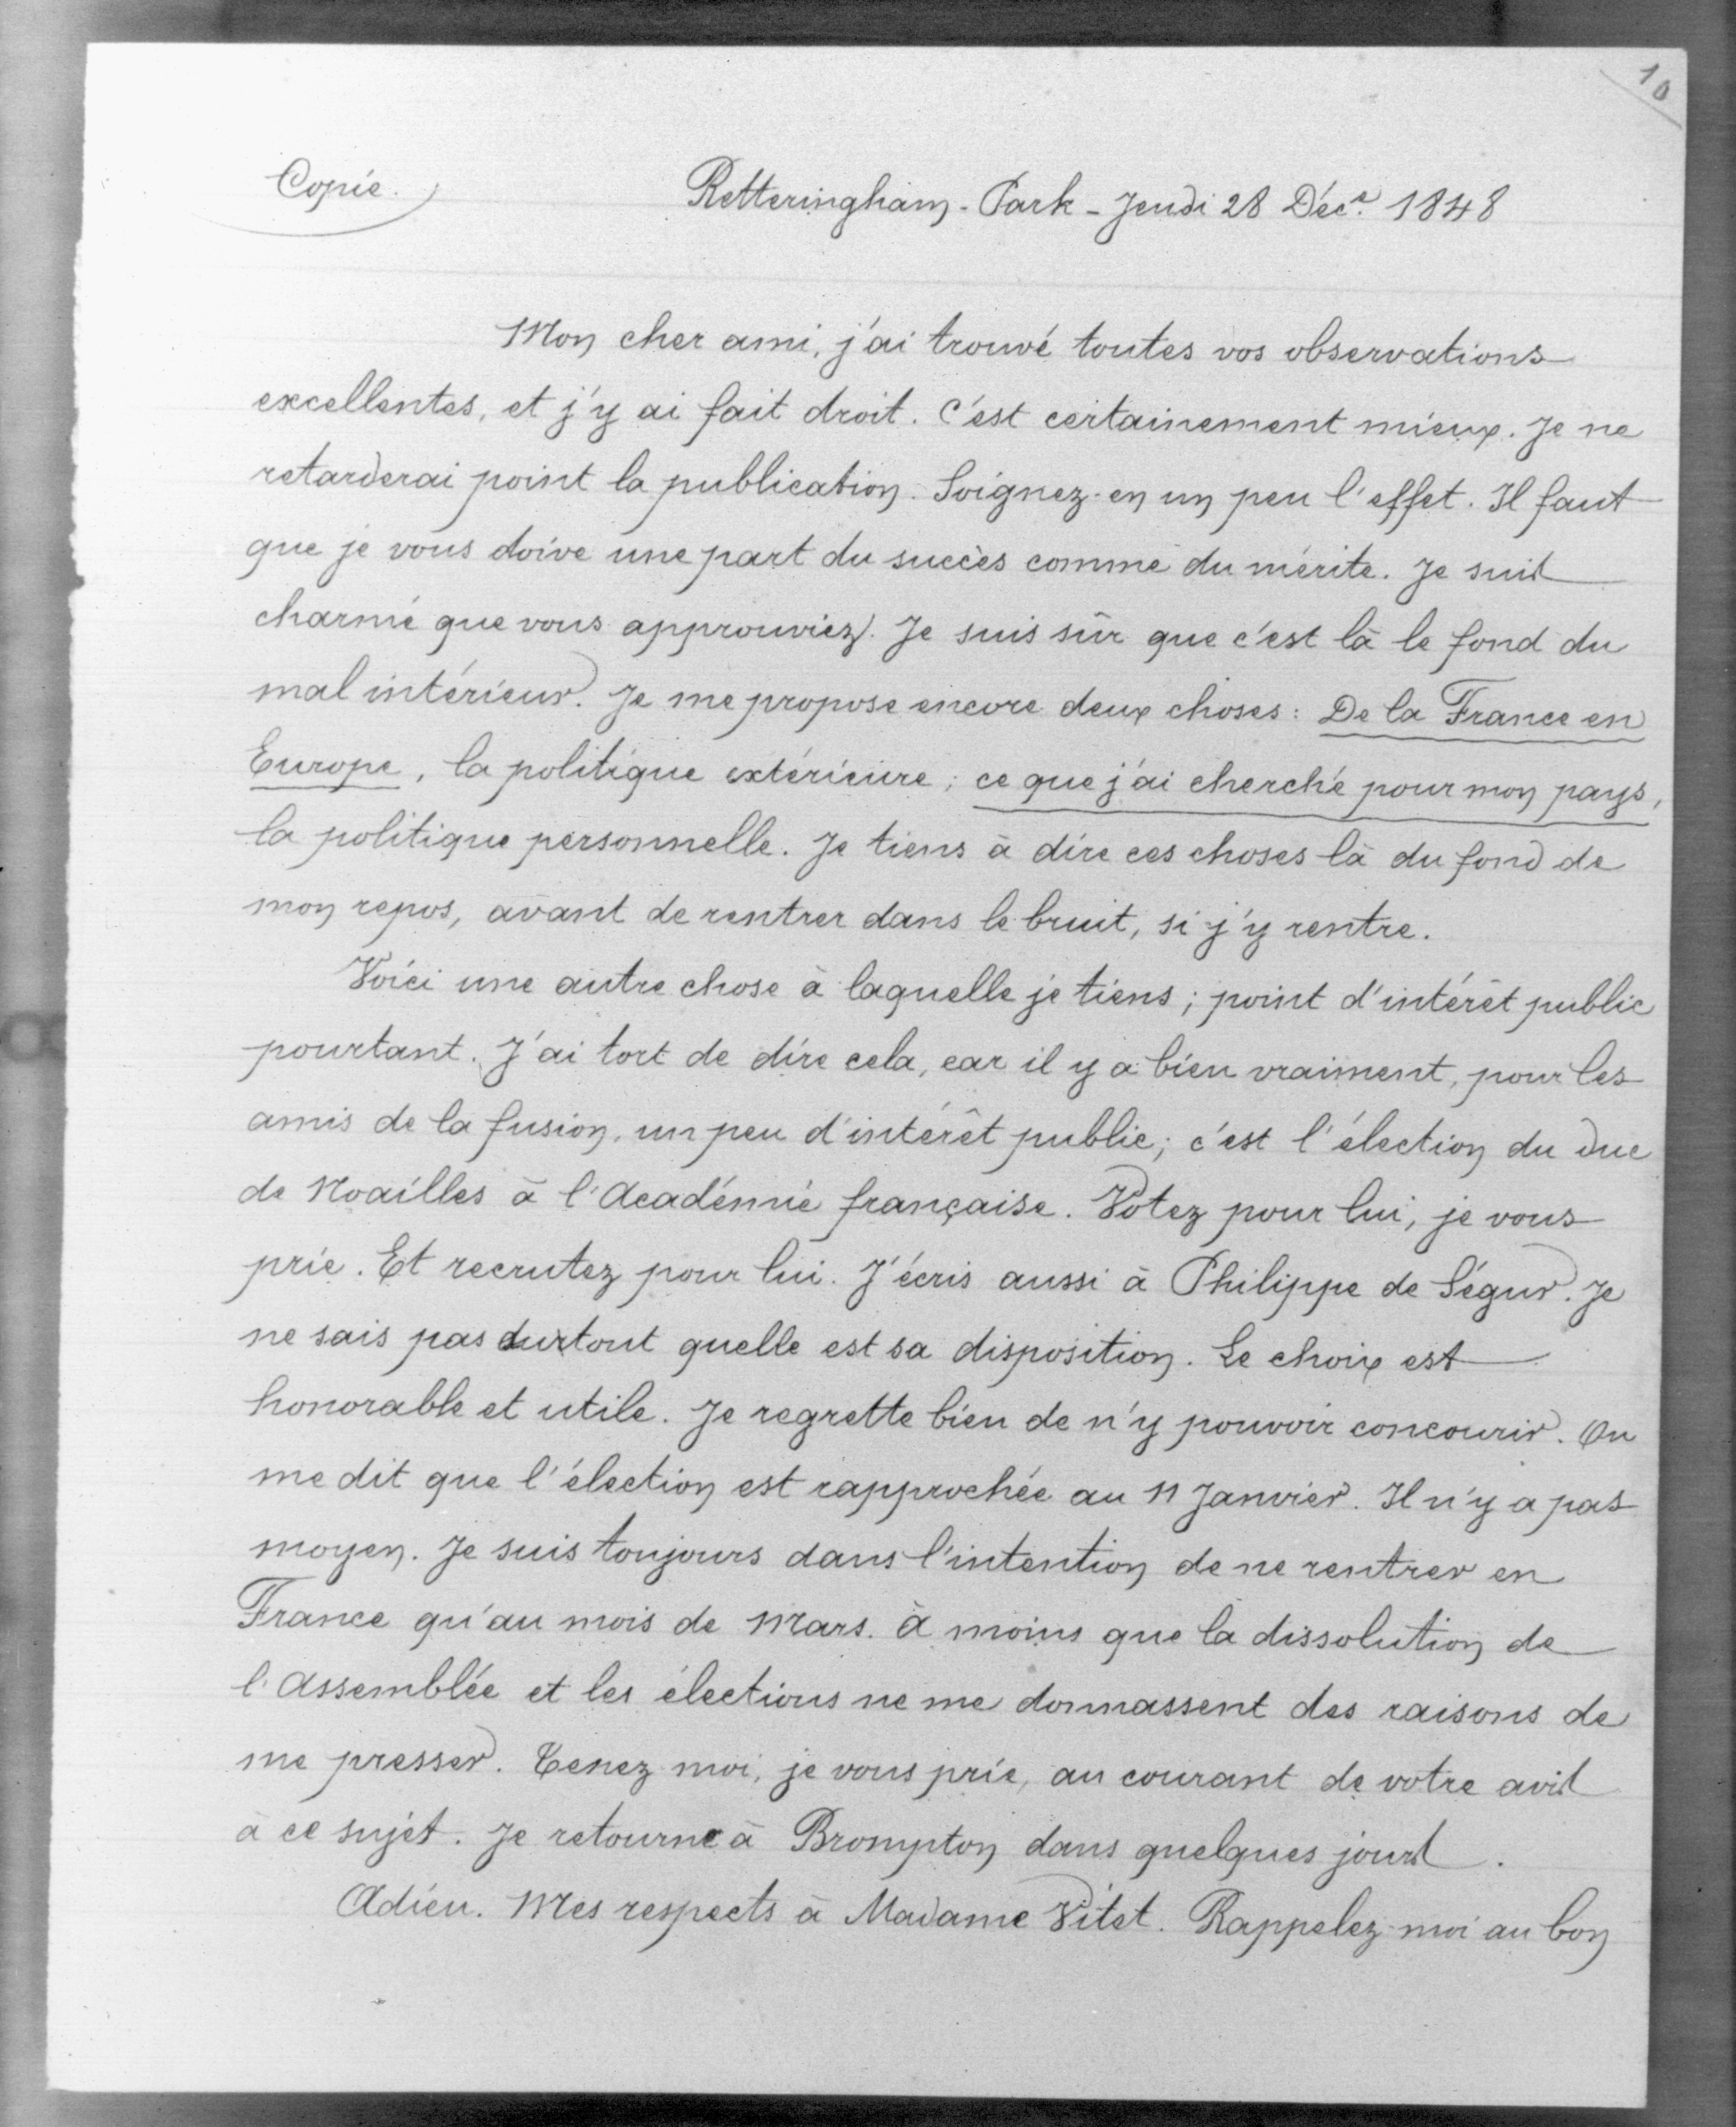 10
Copie.
Retteringham-Park - Jeudi 28 Déc.e 1848
Mon cher ami, j'ai trouvé toutes vos observations
excellentes, et j'y ai fait droit. C'est certainement mieux. Je ne
retarderai point la publication. Soignez-en un peu l'effet. Il faut
que je vous doive une part du succès comme du mérite. Je suis
charmé que vous approuviez. Je suis sûr que c'est là le fond du
mal intérieur. Je me propose encore deux choses : De la France en
Europe, la politique extérieure ; ce que j'ai cherché pour mon pays,
la politique personnelle. Je tiens à dire ces choses là du fond de
mon repos, avant de rentrer dans le bruit, si j'y rentre.
Voici une autre chose à laquelle je tiens ; point d'intérêt public
pourtant. J'ai tort de dire cela, car il y a bien vraiment, pour les
amis de la fusion, un peu d'intérêt public ; c'est l'élection du Duc
de Noailles à l'Académie française. Votez pour lui, je vous
prie. Et recrutez pour lui. J'écris aussi à Philippe de Ségur. Je
ne sais pas du tout quelle est sa disposition. Le choix est
honorable et utile. Je regrette bien de n'y pouvoir concourir. On
me dit que l'élection est rapprochée au 11 Janvier. Il n'y a pas
moyen. Je suis toujours dans l'intention de ne rentrer en
France qu'au mois de Mars. à moins que la dissolution de
l'Assemblée et les élections ne me donnassent des raisons de
me presser. Tenez-moi, je vous prie, au courant de votre avis
à ce sujet. Je retourne à Brompton dans quelques jours.
Adieu. Mes respects à Madame Vitet. Rappelez-moi au bon